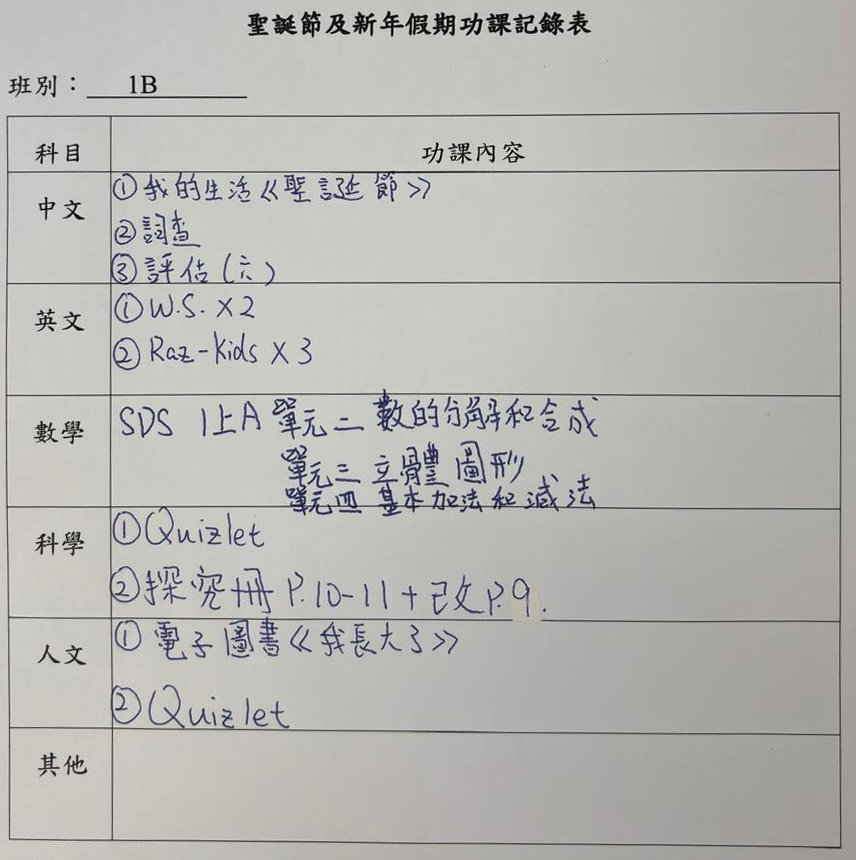 聖誕節及新年假期功課記錄表
班別：1B
科目 功課內容
中文
①我的生活《聖誕節》
②詞查
③評估(六)
英文
①W.S. X 2
②Raz-Kids X 3
數學
SDS 1上A 單元二 數的分解和合成
單元三 立體圖形
單元四 基本加法和減法
科學
①Quizlet
②探究冊 P.10-11 + 改 P.9.
人文
①電子圖書《我長大了》
②Quizlet
其他